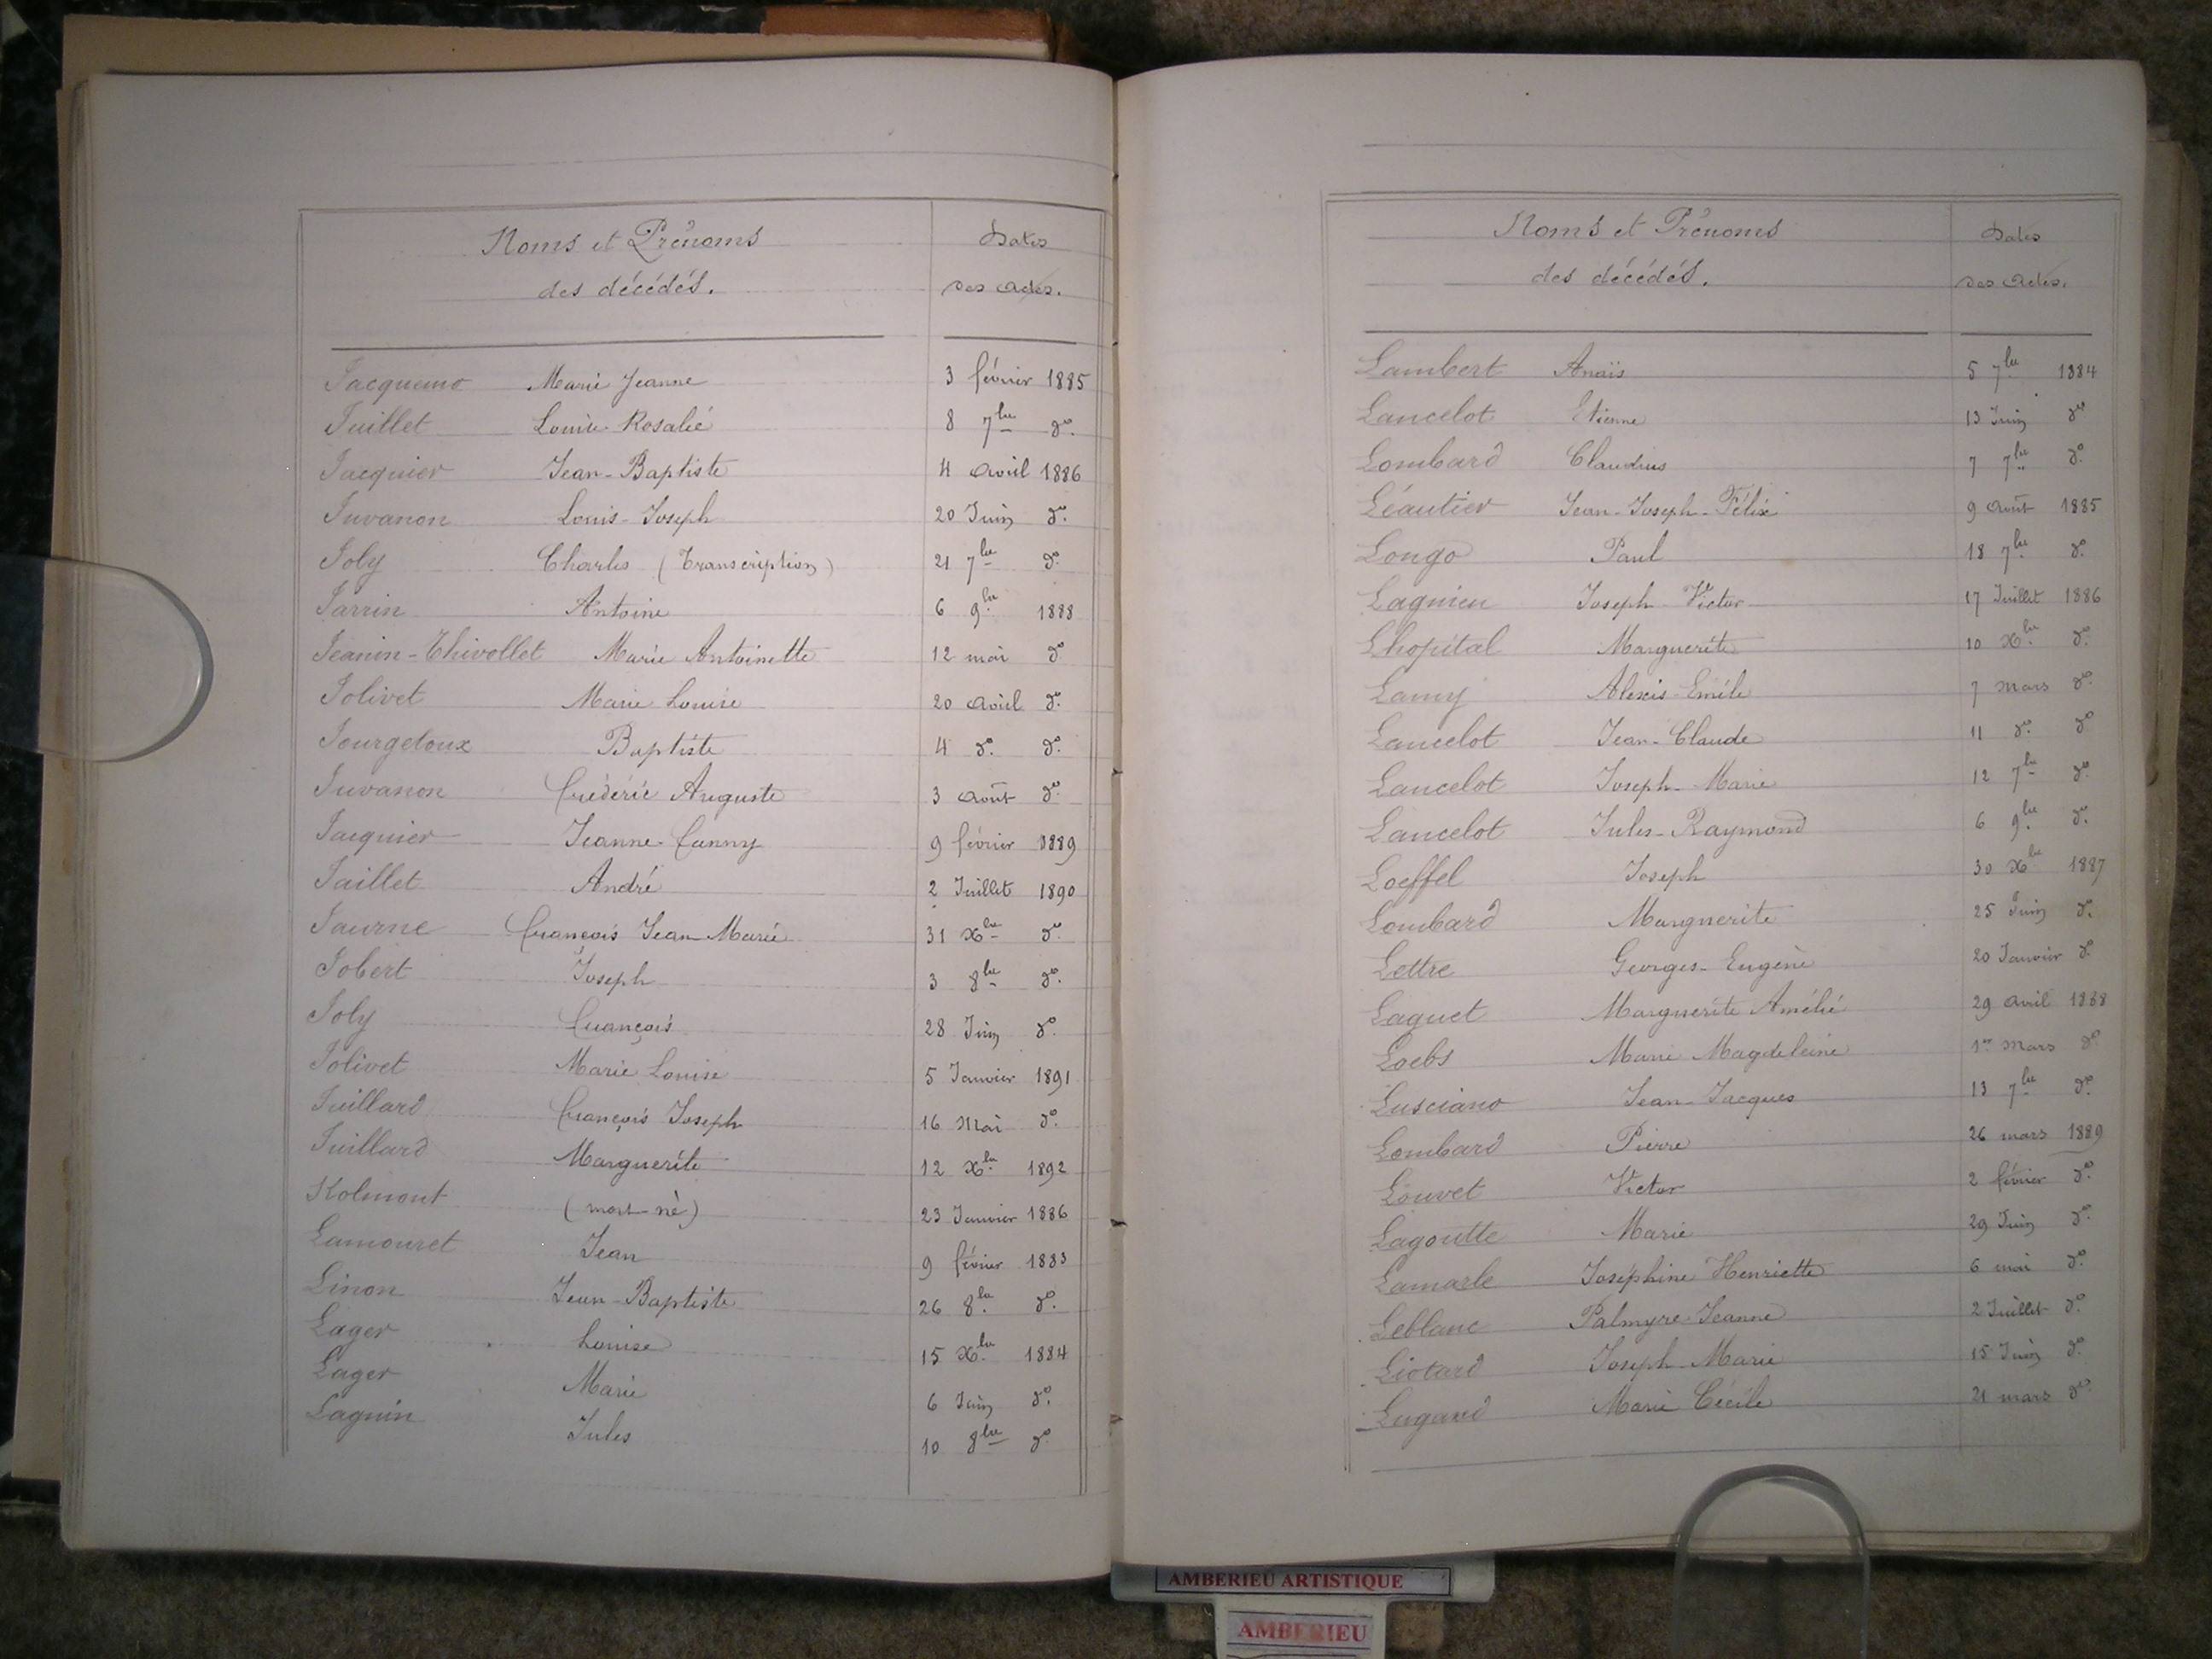 Noms et Prénoms Dates
des décédés. des actes.
Jacquemo Marie Jeanne 3 février 1885
Juillet Louise Rosalie 8 7bre do.
Jacquier Jean-Baptiste 4 avril 1886
Juvanon Louis-Joseph 20 Juin do.
Joly Charles (Transcription) 21 7bre do.
Jarrin Antoine 6 9bre 1888
Jeanin-Thivollet Marie Antoinette 12 mai do
Jolivet Marie Louise 20 avril do.
Jourgetoux Baptiste 4 do. do.
Juvanon Frédéric Auguste 3 août do.
Jacquier Jeanne Fanny 9 février 1889
Jaillet André 2 Juillet 1890
Jaurne François Jean Marie 31 Xbre do.
Jobert Joseph 3 8bre do.
Joly François 28 Juin do.
Jolivet Marie Louise 5 Janvier 1891
Juillard François Joseph 16 Mai do.
Juillard Marguerite 12 Xbre 1892
Kolmont (mort-né) 23 Janvier 1886
Lamouret Jean 9 février 1883
Linon Jean-Baptiste 26 8bre do.
Lager Louise 15 Xbre 1884
Lager Marie 6 Juin do.
Lagnin Jules 10 8bre do
Noms et Prénoms Dates
des décédés. des actes.
Lambert Anaïs 5 7bre 1884
Lancelot Etienne 13 Juin do
Lombard Claudius 7 7bre do.
Léautier Jean-Joseph-Félix 9 août 1885
Longo Paul 18 7bre do.
Lagnieu Joseph-Victor 17 Juillet 1886
Lhopital Marguerite 10 Xbre do.
Lamy Alexis-Emile 7 mars do.
Lancelot Jean-Claude 11 do. do
Lancelot Joseph-Marie 12 7bre do.
Lancelot Jules-Raymond 6 9bre do.
Loeffel Joseph 30 Xbre 1887
Lombard Marguerite 25 Juin do.
Lettre Georges-Eugène 20 Janvier do
Laguet Marguerite Amélie 29 avril 1888
Loebs Marie Magdeleine 1er mars do
Lusciano Jean-Jacques 13 7bre do.
Lombard Pierre 26 mars 1889
Louvet Victor 2 février do.
Lagoutte Marie 29 Juin do.
Lamarle Joséphine Henriette 6 mai do.
Leblanc Palmyre Jeanne 2 Juillet do.
Liotard Joseph-Marie 15 Juin do.
Lugand Marie Cécile 21 mars do
AMBERIEU ARTISTIQUE
AMBERIEU